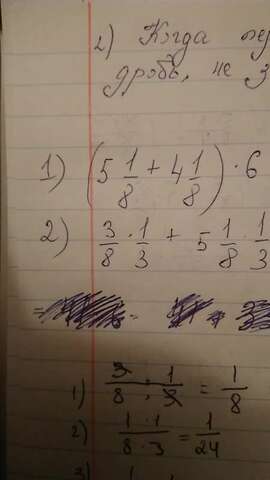 2) Когда пе
дробь, не з
1) (5 1/8 + 4 1/8) · 6
2) 3/8 · 1/3 + 5 1/8 · 1/3
=
1) 3/8 · 1/3 = 1/8
2) 1·1/8·3 = 1/24
3)